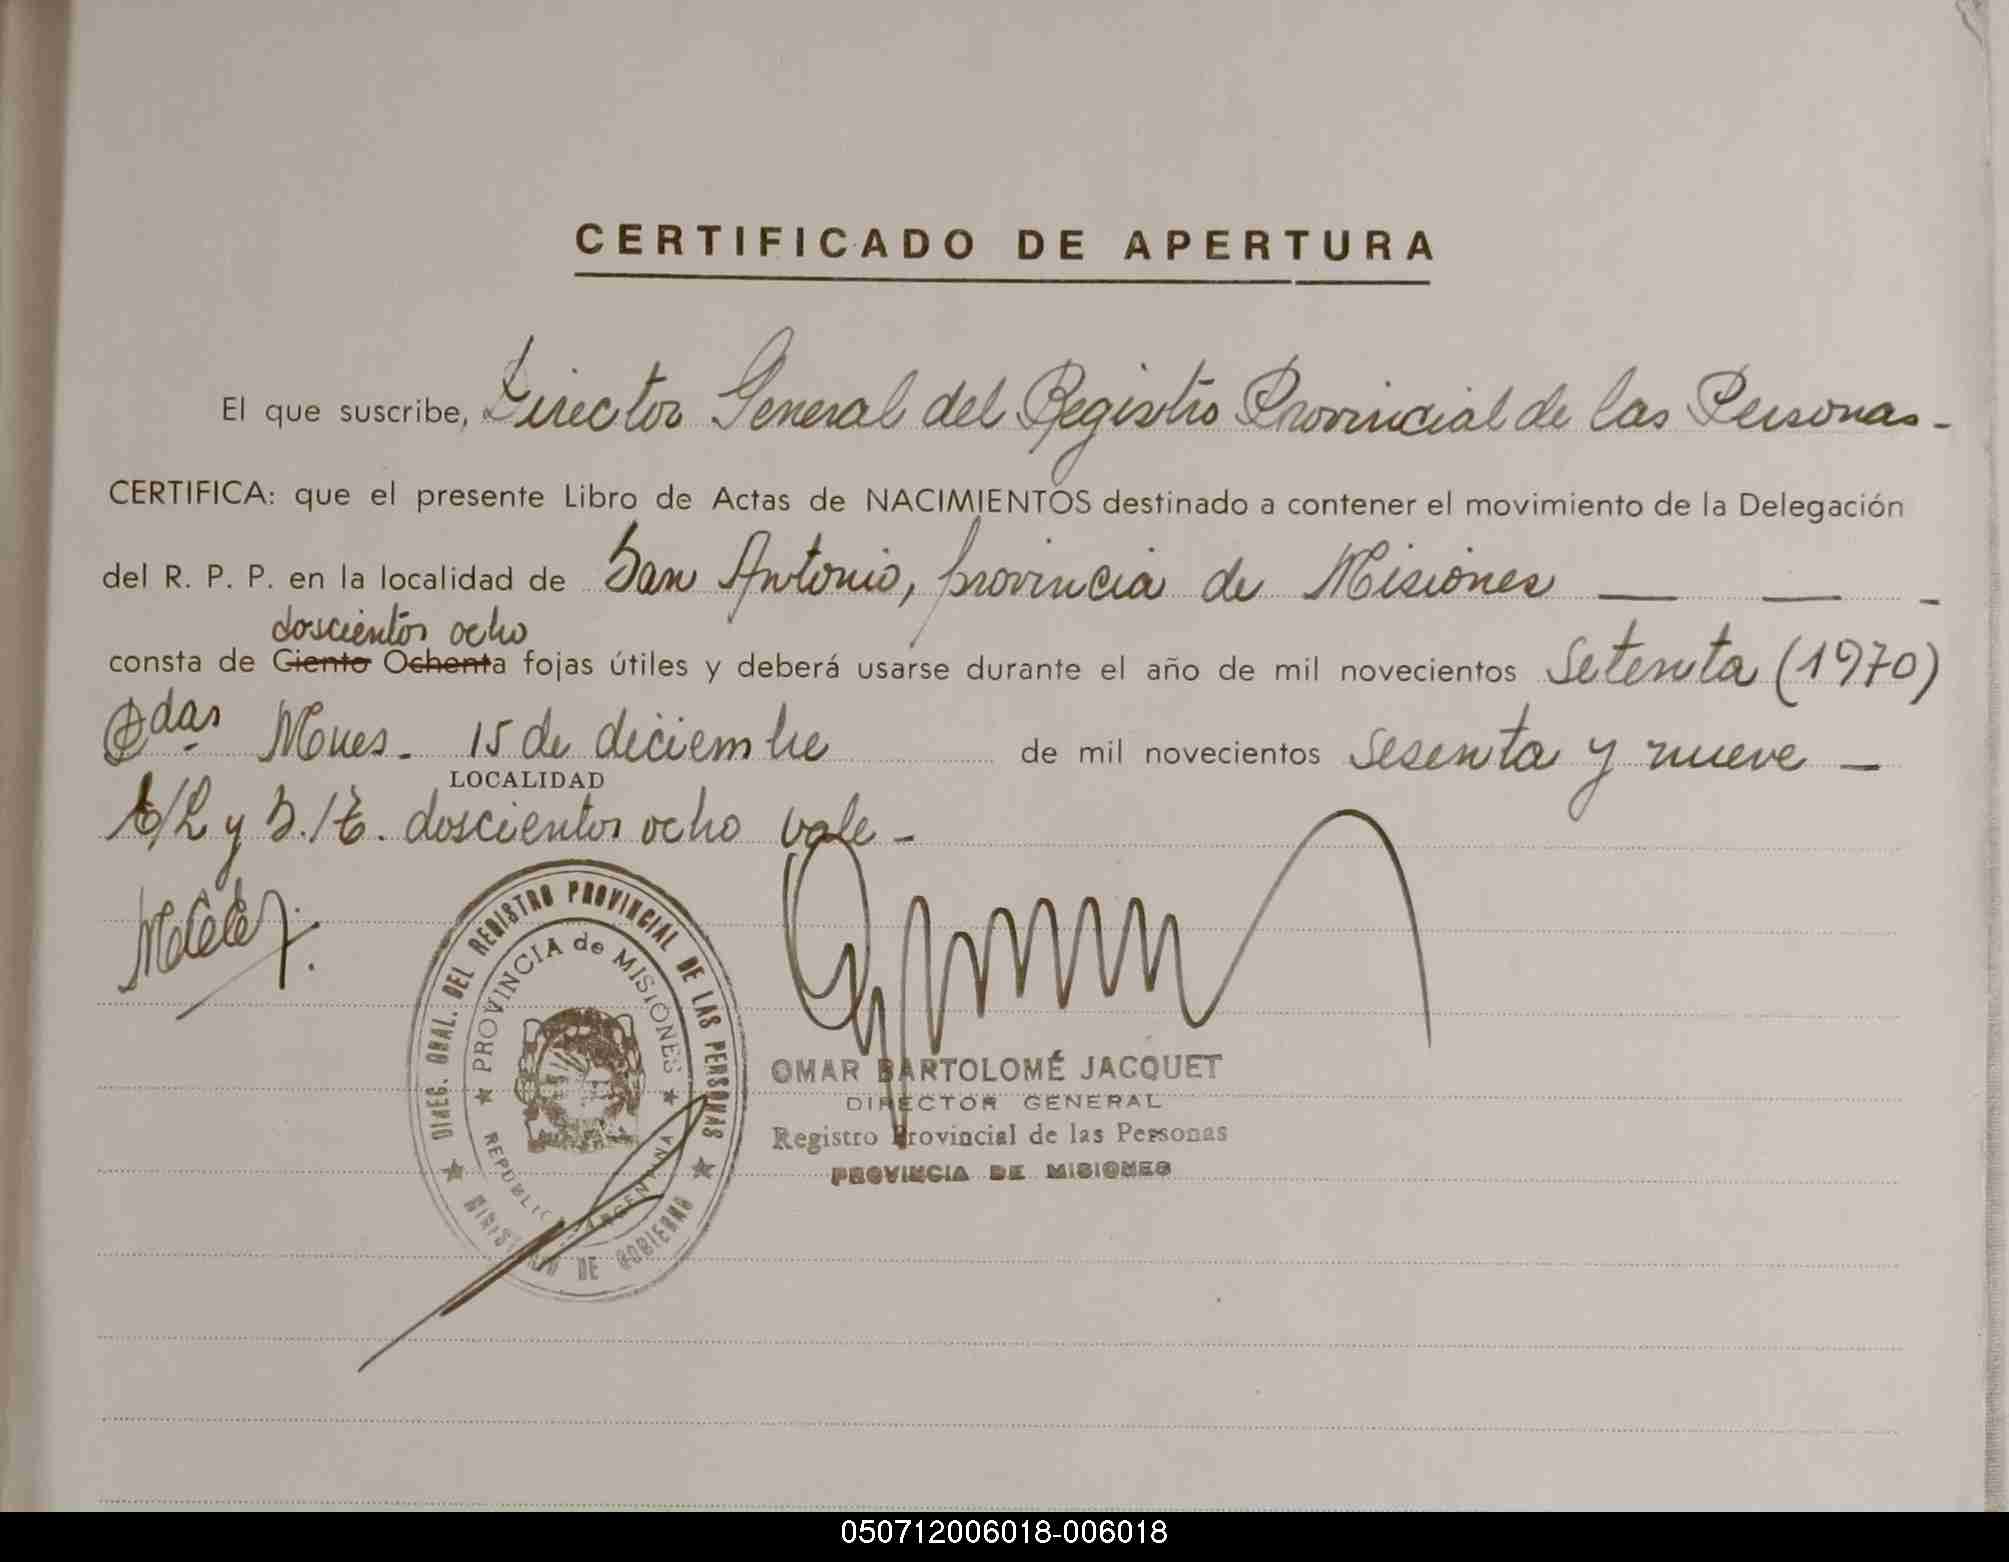 CERTIFICADO DE APERTURA
El que suscribe, Director General del Registro Provincial de las Personas.-
CERTIFICA: que el presente Libro de Actas de NACIMIENTOS destinado a contener el movimiento de la Delegación
del R. P. P. en la localidad de San Antonio, provincia de Misiones — — -
doscientos ocho
consta de Ciento Ochenta fojas útiles y deberá usarse durante el año de mil novecientos setenta (1970)
Pdas Mnes. 15 de diciembre de mil novecientos sesenta y nueve —
LOCALIDAD
E/L y S./T. doscientos ocho vale -
DIREC. GRAL. DEL REGISTRO PROVINCIAL DE LAS PERSONAS
MINISTERIO DE GOBIERNO
PROVINCIA de MISIONES
REPÚBLICA ARGENTINA
OMAR BARTOLOMÉ JACQUET
DIRECTOR GENERAL
Registro Provincial de las Personas
PROVINCIA DE MISIONES
050712006018-006018